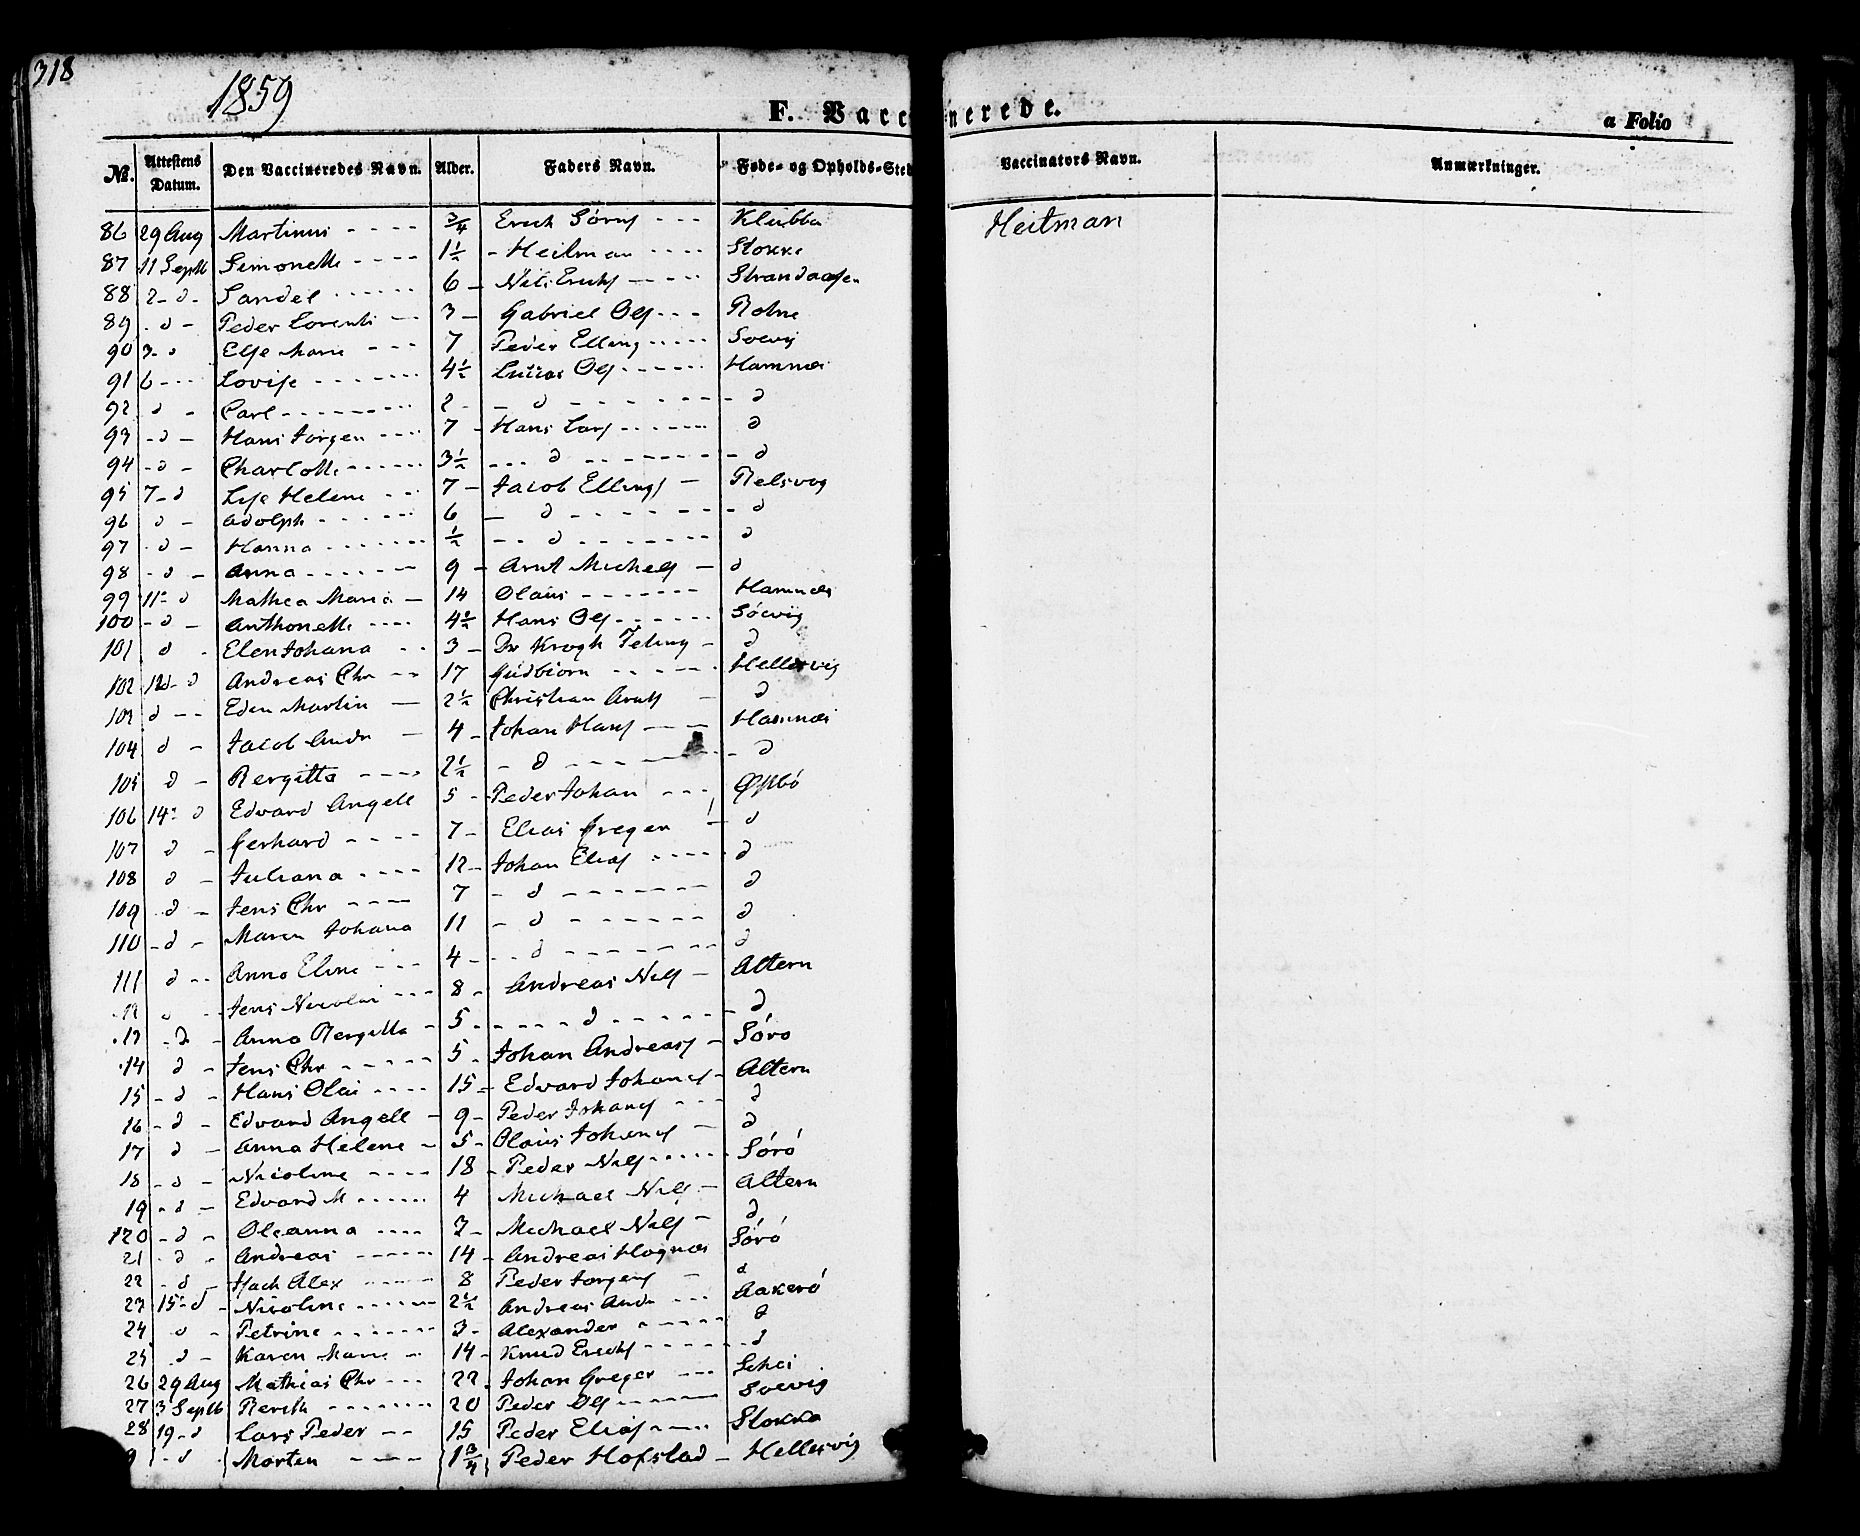 318
1859
F. Vaccinerede.
a Folio
No. Attestens Datum. Den Vaccineredes Navn. Alder. Faders Navn. Føde- og Opholds-Sted Vaccinators Navn. Anmærkninger.
86 29 Aug Martinus - - - - 3/4 Erich - - - Klubba Heitman
87 11 Septb Simonette - - - - 1 1/2 - Heitman - - - - Stokke
88 2 - d - Sandel - - - - - - 6 - Nils Erichs - - - - Strandaasen
89 - d - Peder Lorents - - 3 - Gabriel Ols - - - Rotne
90 3 - d Else Marie - - - 7 Peder Elling - - - - - Soevig
91 6 - - - Lovise - - - - - - 4 1/2 Ols - - - - - - Hamnes
92 d - Carl - - - - - - - - 2 - - d - - - - - - - d
93 - d - Hans Jørgen - - - - 7 - Hans Lars - - - - - - d
94 - d - Charlotte - - - - - - 3 1/2 - - - d - - - - - - - - d
95 7 - d Lise Helene - - - 7 - Jacob Ellings - Relsvog
96 d - Adolph - - - - - - 6 - d - - - - - - - d
97 - d - Hanna - - - - - - - 1/2 - - d - - - - - - - - d
98 - d - Anna - - - - - - - 9 - Arnt Michels - d
99 11 - d Mathea Maria - 14 Olaus - - - - - - - Hamnes
100 - d - Anthonette - - - - 4 1/2 Hans Ols - - - - - - Sóevig
101 d - Elen Johana - - 3 - Dr Krogh - d
102 12 - d Andreas Chr - - 17 Gudbiorn - - - - - - Hellesvig
103 d - - Eden Martin - 2 1/2 Christian Arnts - d
104 d - Jacob Andr - 4 - Johan Hans - - - Hamnes
105 d - Bergitta - - - - 2 1/2 - d - - - - - - - - d
106 14 - d Edvard Angell 5 - Peder Johan - - - Øysbó
107 d - Gerhard - - - - 7 - Elias Greger - d
108 d - Juliana - - - - 12 - Johan Elias - - - - - d
109 d - Jens Chr - - - - 7 - d - - - - - - - d
110 - d - Maren Johana 11 - d - - - - - - - d
111 d - - Anna Eline - - - 4 - - - d - - - - - - - d
12 d - Jens Nicolai - - - 8 - Andreas Nils - Altern
13 - d - Anna Bergitta - 5 - - - - - d - - - - - - - d
14 d - Jens Chr - - - - - 5 - Johan Andreas - Sóro
15 - d - Hans Olai - - - - 15 - Edvard Johans - Altern
16 - d - Edvard Angell - 9 - Peder Johans - - - d
17 d - Anna Helene - 5 - Olaus Johans - d
18 - d - Nicoline - - - - 18 - Peder Nils - - - - - - Sóró
19 - d - Edvard M - - - - - - 4 Michael Nils - Altern
120 - d - Oleanna - - - - 3 - Michael Nils - d
21 - d - Andreas - - - - - - 14 - Andreas Hognes Sóró
22 - d - Hach Alex - - - - - 8 Peder Jorgens - d
23 15 - d - Nicoline - - - - - - - 2 1/2 Andreas Andr - - - Aakeró
24 d - Petrine - - - - - - - 3 - Alexander - - - - - - d
25 - d - Karen Marie - 14 - Knud Erichs - - - - - - - d
26 29 Aug Mathias Chr - - - 22 - Johan Greger - - - Schei
27 3 Septb Berith - - - - - - - - 20 Peder Ols - - - - - - Soevig
28 19 - d Lars Peder - - 15 Peder Elias - - - - Stokka
9 - d Morten - - - - 1 3/4 Peder Hofstad - Hellesvig